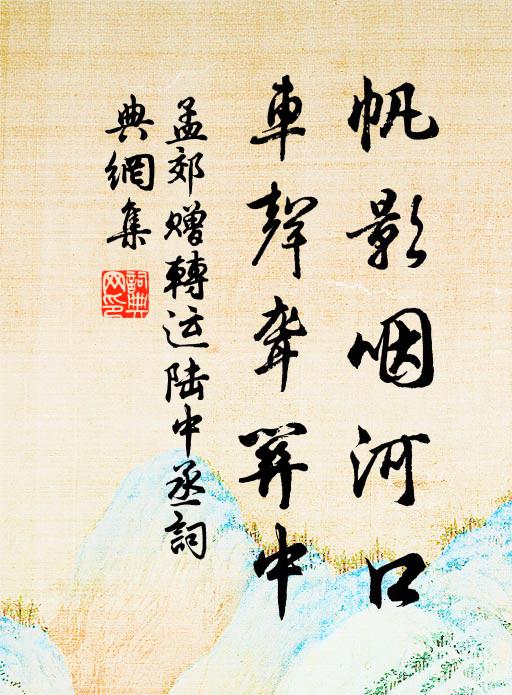 帆影咽河口
車聲聾關中
孟郊贈轉运陆中丞詞
典網集
詞典
网印